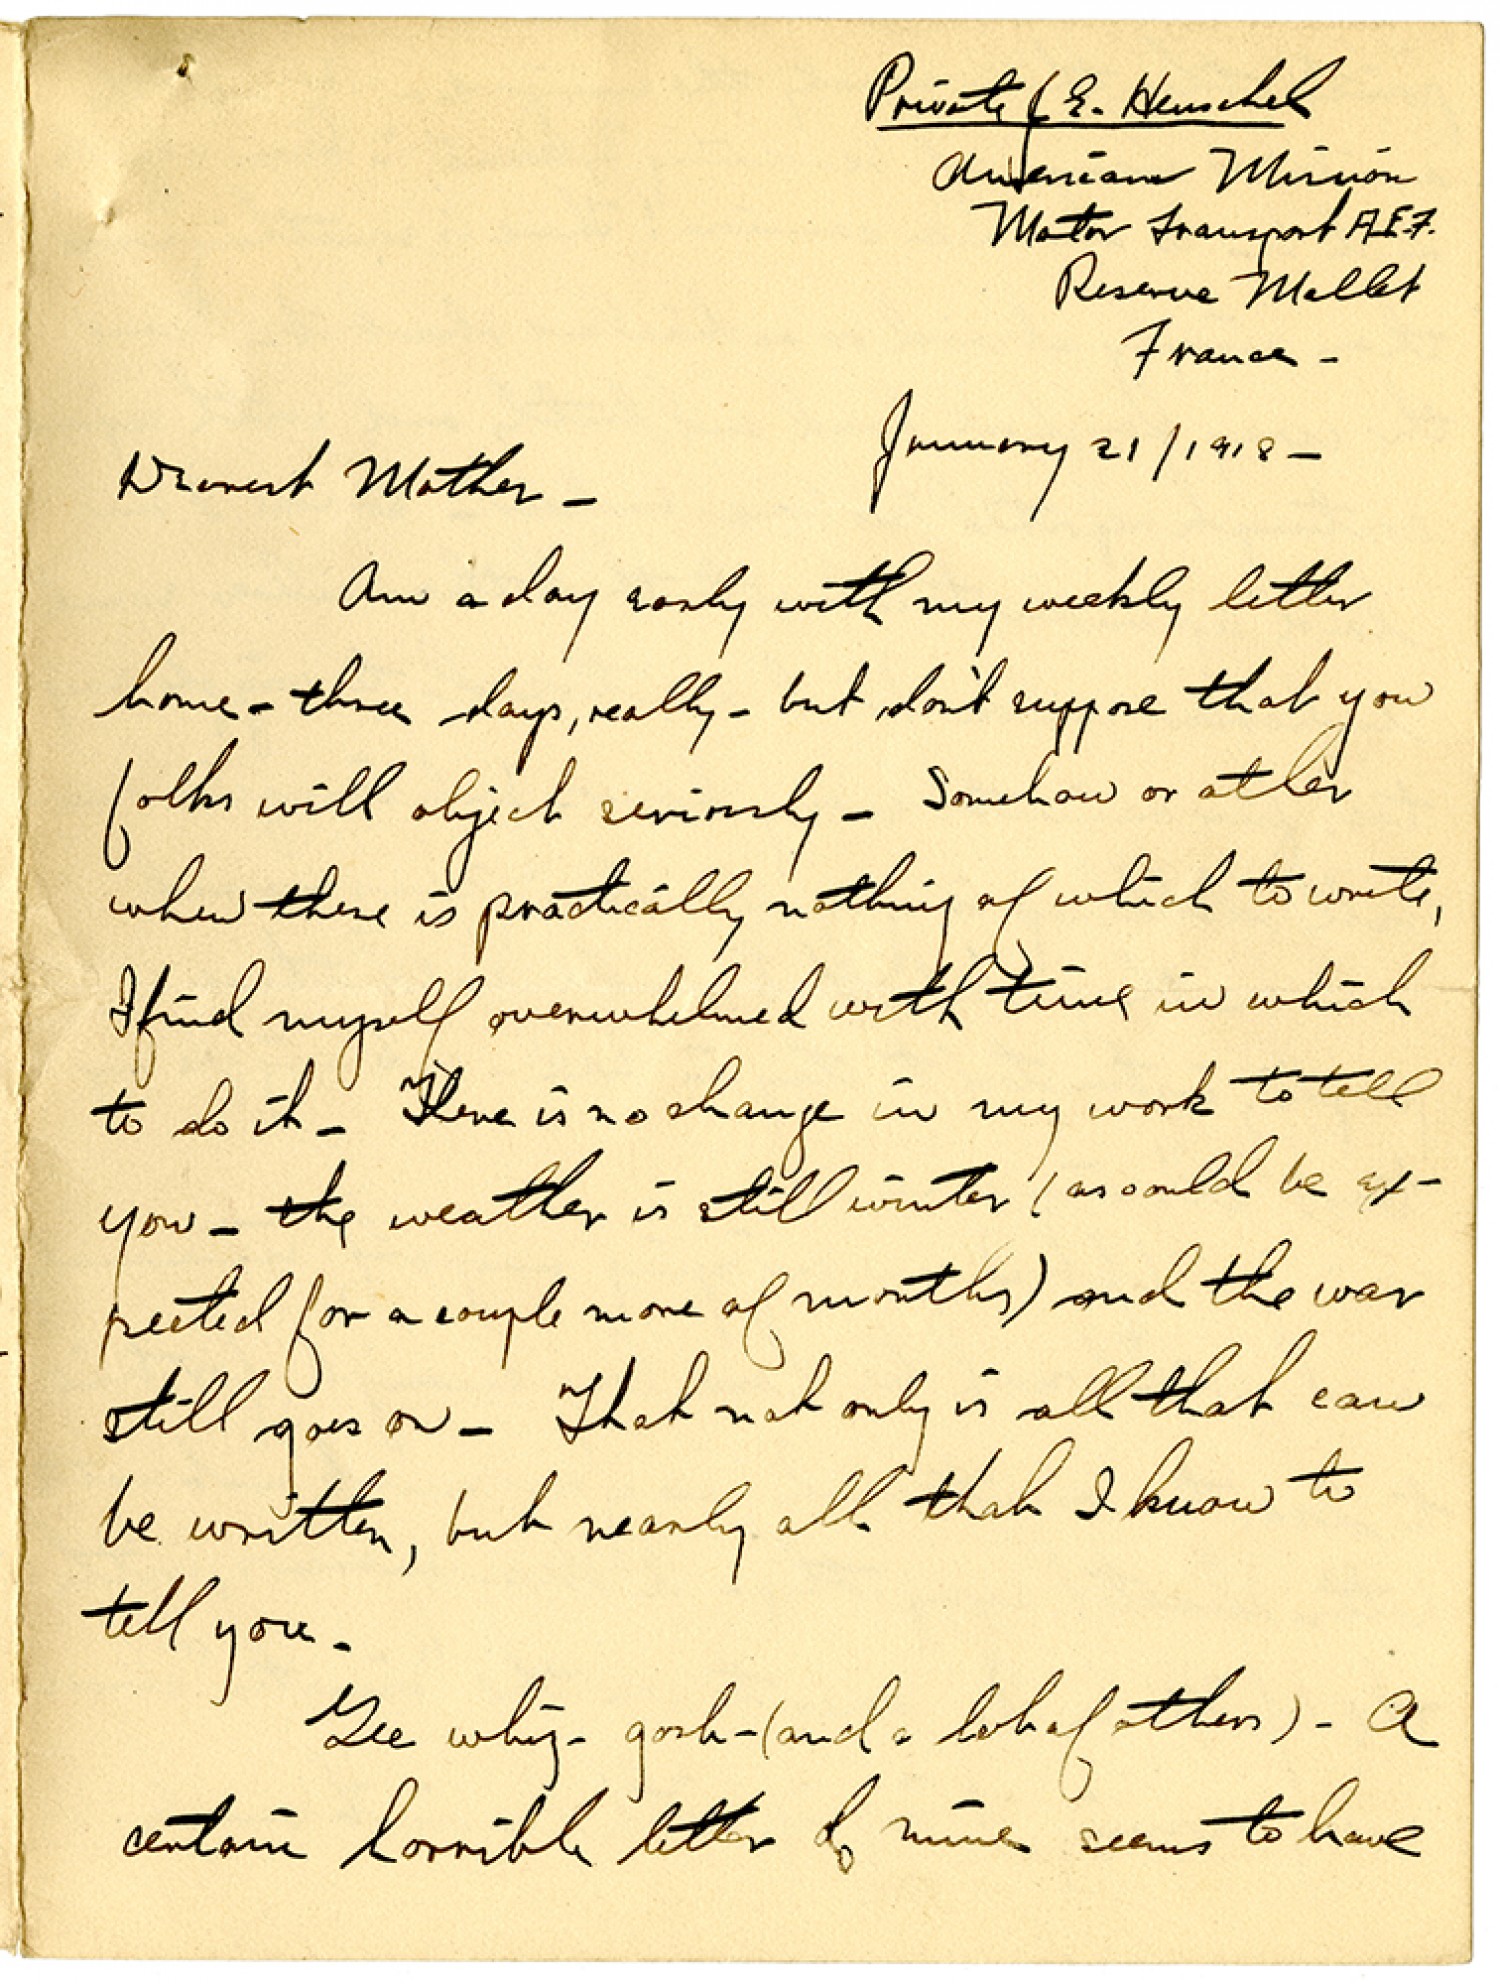 Private f E. Henschel
American Mission
Motor Transport A.E.F.
Reserve Mallet
France -
January 21/1918 -
Dearest Mother -
Am a day early with my weekly letter
home - three days, really - but don't suppose that you
folks will object seriously - Somehow or other
when there is practically nothing of which to write,
I find myself overwhelmed with time in which
to do it - There is no change in my work to tell
you - the weather is still winter (as could be ex-
pected for a couple more of months) and the war
still goes on - That not only is all that can
be written, but nearly all that I know to
tell you -
Gee whiz - gosh - (and a lot of others) - A
certain horrible letter of mine seems to have